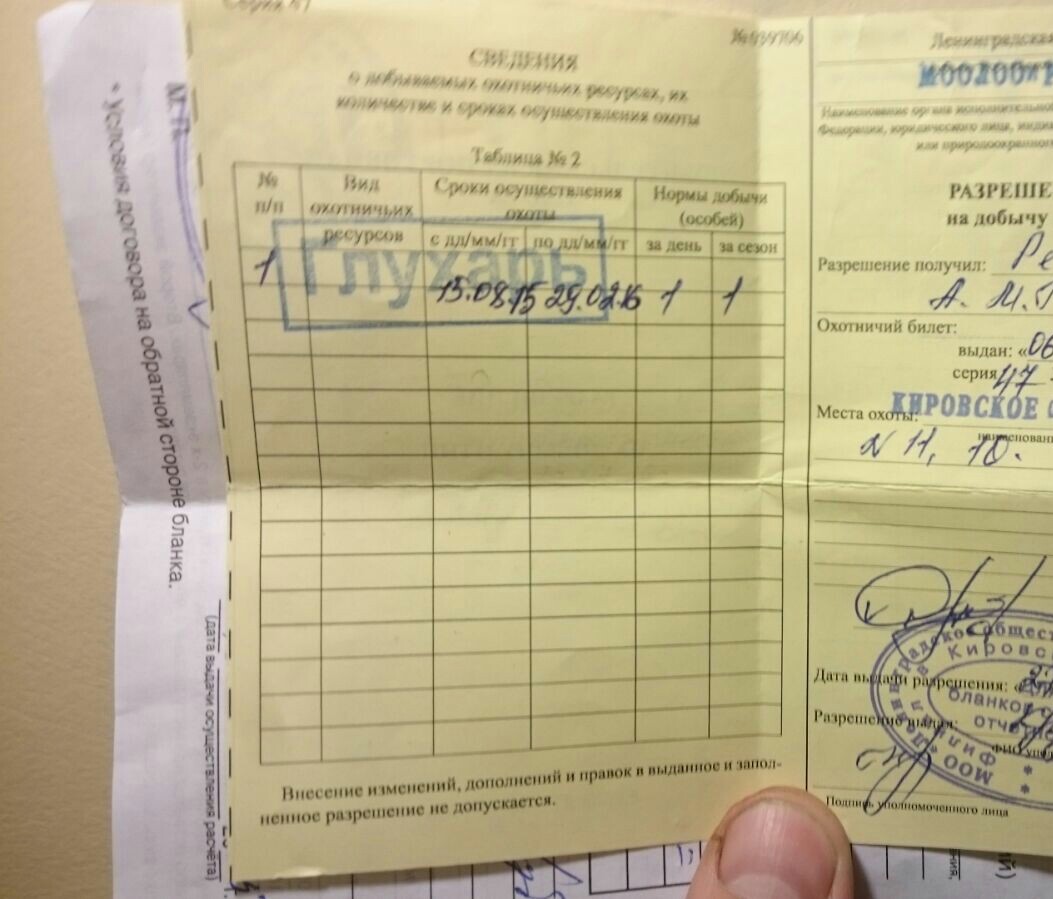 Серия 47
№ 039706
СВЕДЕНИЯ
о добываемых охотничьих ресурсах, их
количестве и сроках осуществления охоты
Таблица № 2
№ п/п
Вид охотничьих ресурсов
Сроки осуществления охоты
Нормы добычи (особей)
с дд/мм/гг по дд/мм/гг за день за сезон
Глухарь
1 15.08.15 29.02.16 1 1
Внесение изменений, дополнений и правок в выданное и запол-
ненное разрешение не допускается.
Ленинградская
МООЛООиР
Наименование органа исполнительно
Федерации, юридического лица, индив
или природоохранно
РАЗРЕШЕ
на добычу
Разрешение получил:
Охотничий билет:
выдан: «06
серия 47
Места охоты: КИРОВСКОЕ
наименован
N 11, 10.
Дата выдачи разрешения: «
Разрешение выдал:
ФИО упол
Подпись уполномоченного лица
Ленинградское общест
Кировс
Для
бланков
отчетно
Филиал
МОО
М.П.
* Условия договора на обратной стороне бланка.
(дата выдачи осуществления расчёта)